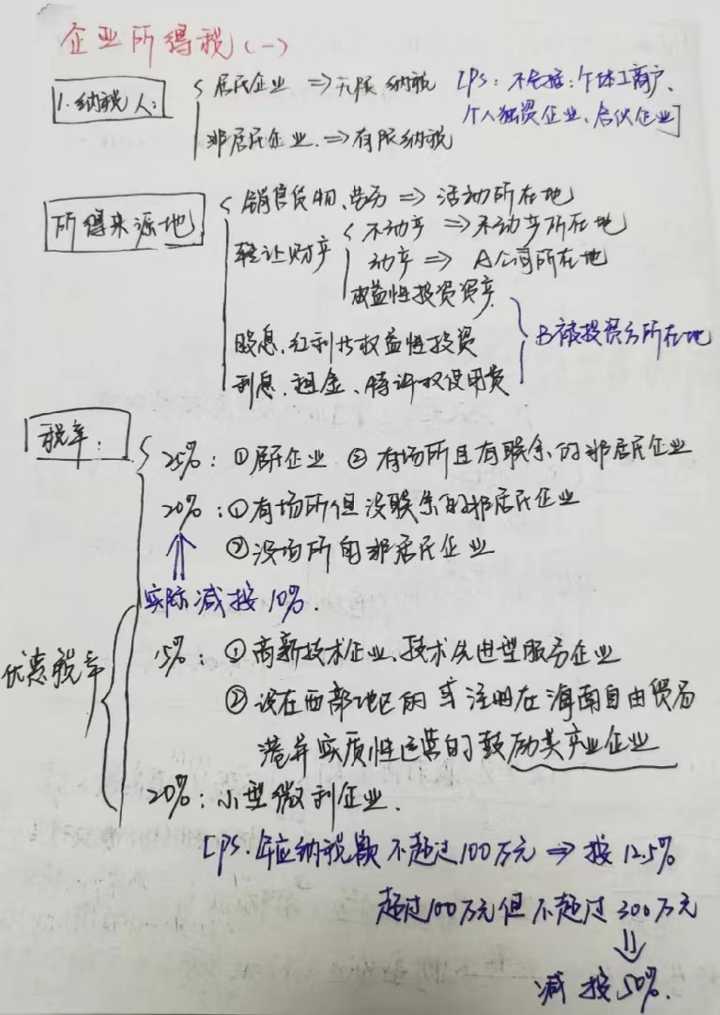 企业所得税(一)
1.纳税人: 居民企业 ⇒无限纳税 [PS:不包括:个体工商户、
个人独资企业、合伙企业]
非居民企业.⇒有限纳税
所得来源地 销售货物、劳务 ⇒ 活动所在地
转让财产 不动产 ⇒不动产所在地
动产 ⇒ A公司所在地
权益性投资资产
B被投资方所在地
股息、红利等权益性投资
利息、租金、特许权使用费
税率:
25%:①居民企业 ②有场所且有联系的非居民企业
20%:①有场所但没联系的非居民企业
②没场所的非居民企业
实际减按10%.
优惠税率
15%:①高新技术企业、技术先进型服务企业
②设在西部地区的或注册在海南自由贸易
港并实质性运营的鼓励类产业企业
20%:小型微利企业.
[PS.年应纳税额不超过100万元⇒按12.5%
超过100万元但不超过300万元
⇓
减按50%.